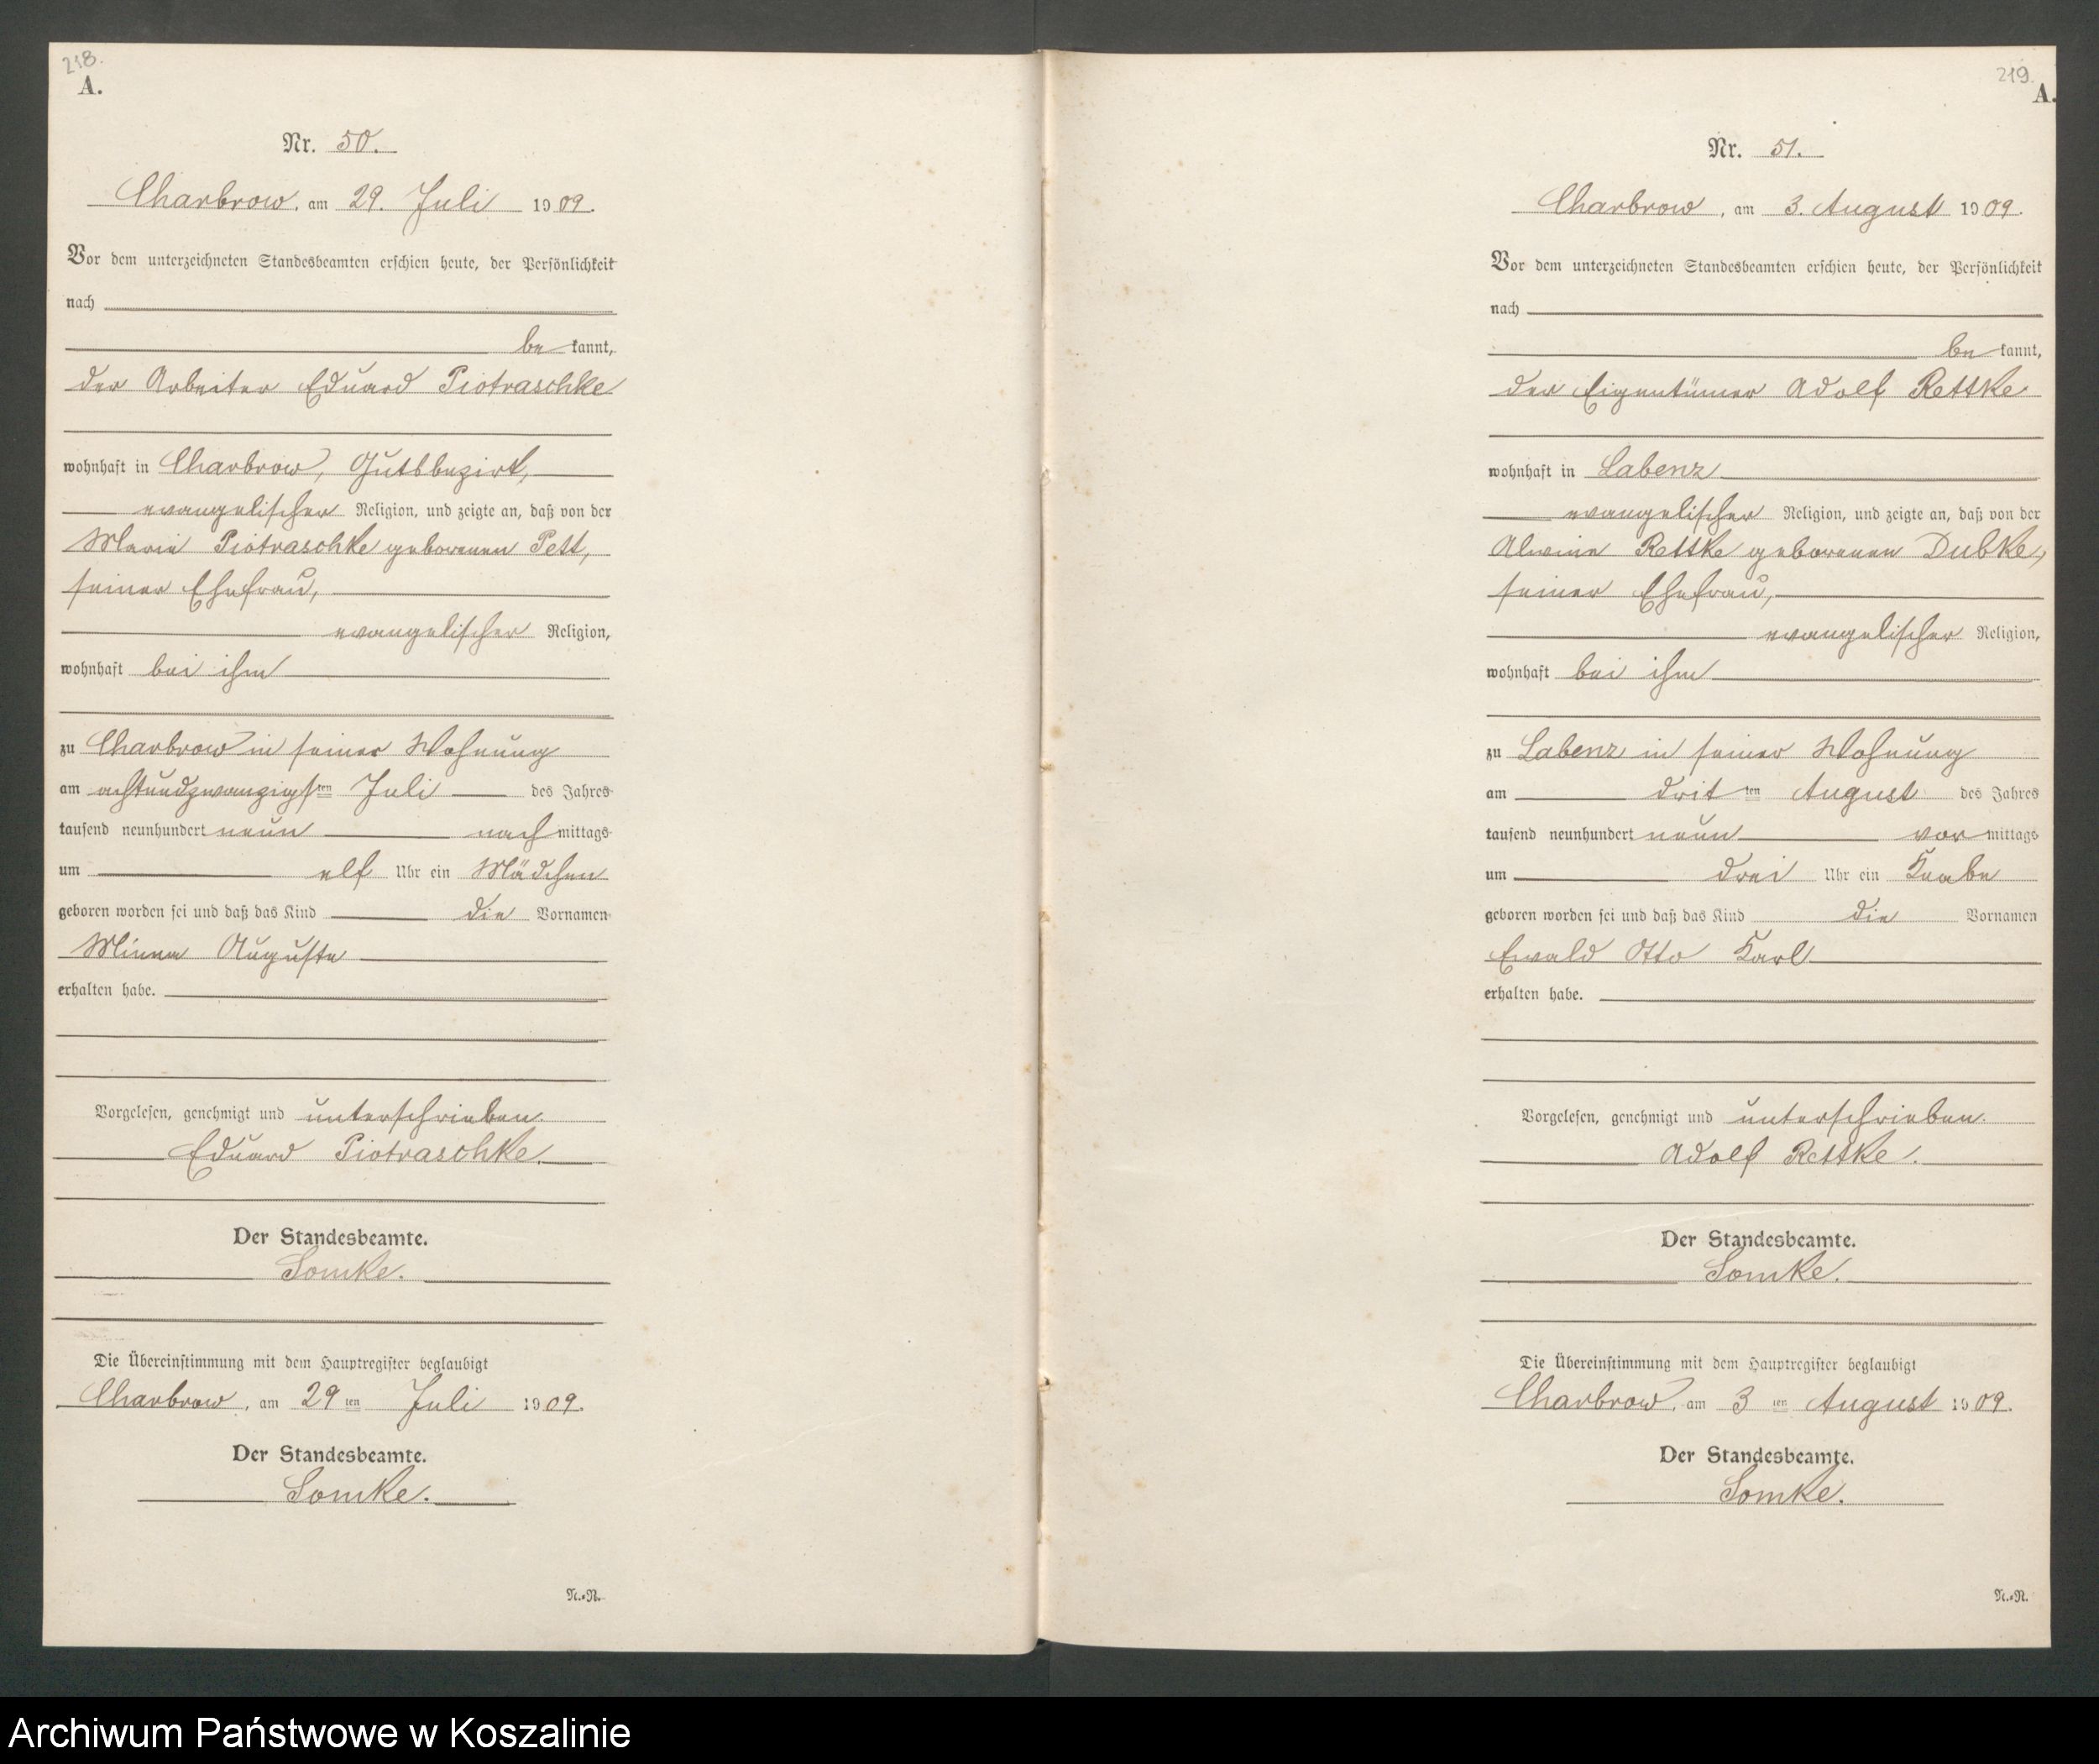 218.
A.
Nr. 50.
Charbrow, am 29. Juli 1909.
Vor dem unterzeichneten Standesbeamten erschien heute, der Persönlichkeit
nach
bekannt,
der Arbeiter Eduard Piotraschke
wohnhaft in Charbrow, Gutsbezirk,
evangelischer Religion, und zeigte an, daß von der
Marie Piotraschke geborenen Pett,
seiner Ehefrau,
evangelischer Religion,
wohnhaft bei ihm
zu Charbrow in seiner Wohnung
am achtundzwanzigsten Juli des Jahres
tausend neunhundert neun nachmittags
um elf Uhr ein Mädchen
geboren worden sei und daß das Kind die Vornamen
Minna Auguste
erhalten habe.
Vorgelesen, genehmigt und unterschrieben.
Eduard Piotraschke.
Der Standesbeamte.
Somke.
Die Übereinstimmung mit dem Hauptregister beglaubigt
Charbrow, am 29ten Juli 1909.
Der Standesbeamte.
Somke.
N.-R.
219.
A.
Nr. 51.
Charbrow, am 3. August 1909.
Vor dem unterzeichneten Standesbeamten erschien heute, der Persönlichkeit
nach
bekannt,
der Eigentümer Adolf Rettke
wohnhaft in Labenz
evangelischer Religion, und zeigte an, daß von der
Alwine Rettke geborenen Dubke,
seiner Ehefrau,
evangelischer Religion,
wohnhaft bei ihm
zu Labenz in seiner Wohnung
am dritten August des Jahres
tausend neunhundert neun vormittags
um drei Uhr ein Knabe
geboren worden sei und daß das Kind die Vornamen
Ewald Otto Karl
erhalten habe.
Vorgelesen, genehmigt und unterschrieben.
Adolf Rettke.
Der Standesbeamte.
Somke.
Die Übereinstimmung mit dem Hauptregister beglaubigt
Charbrow, am 3ten August 1909.
Der Standesbeamte.
Somke.
N.-R.
Archiwum Państwowe w Koszalinie